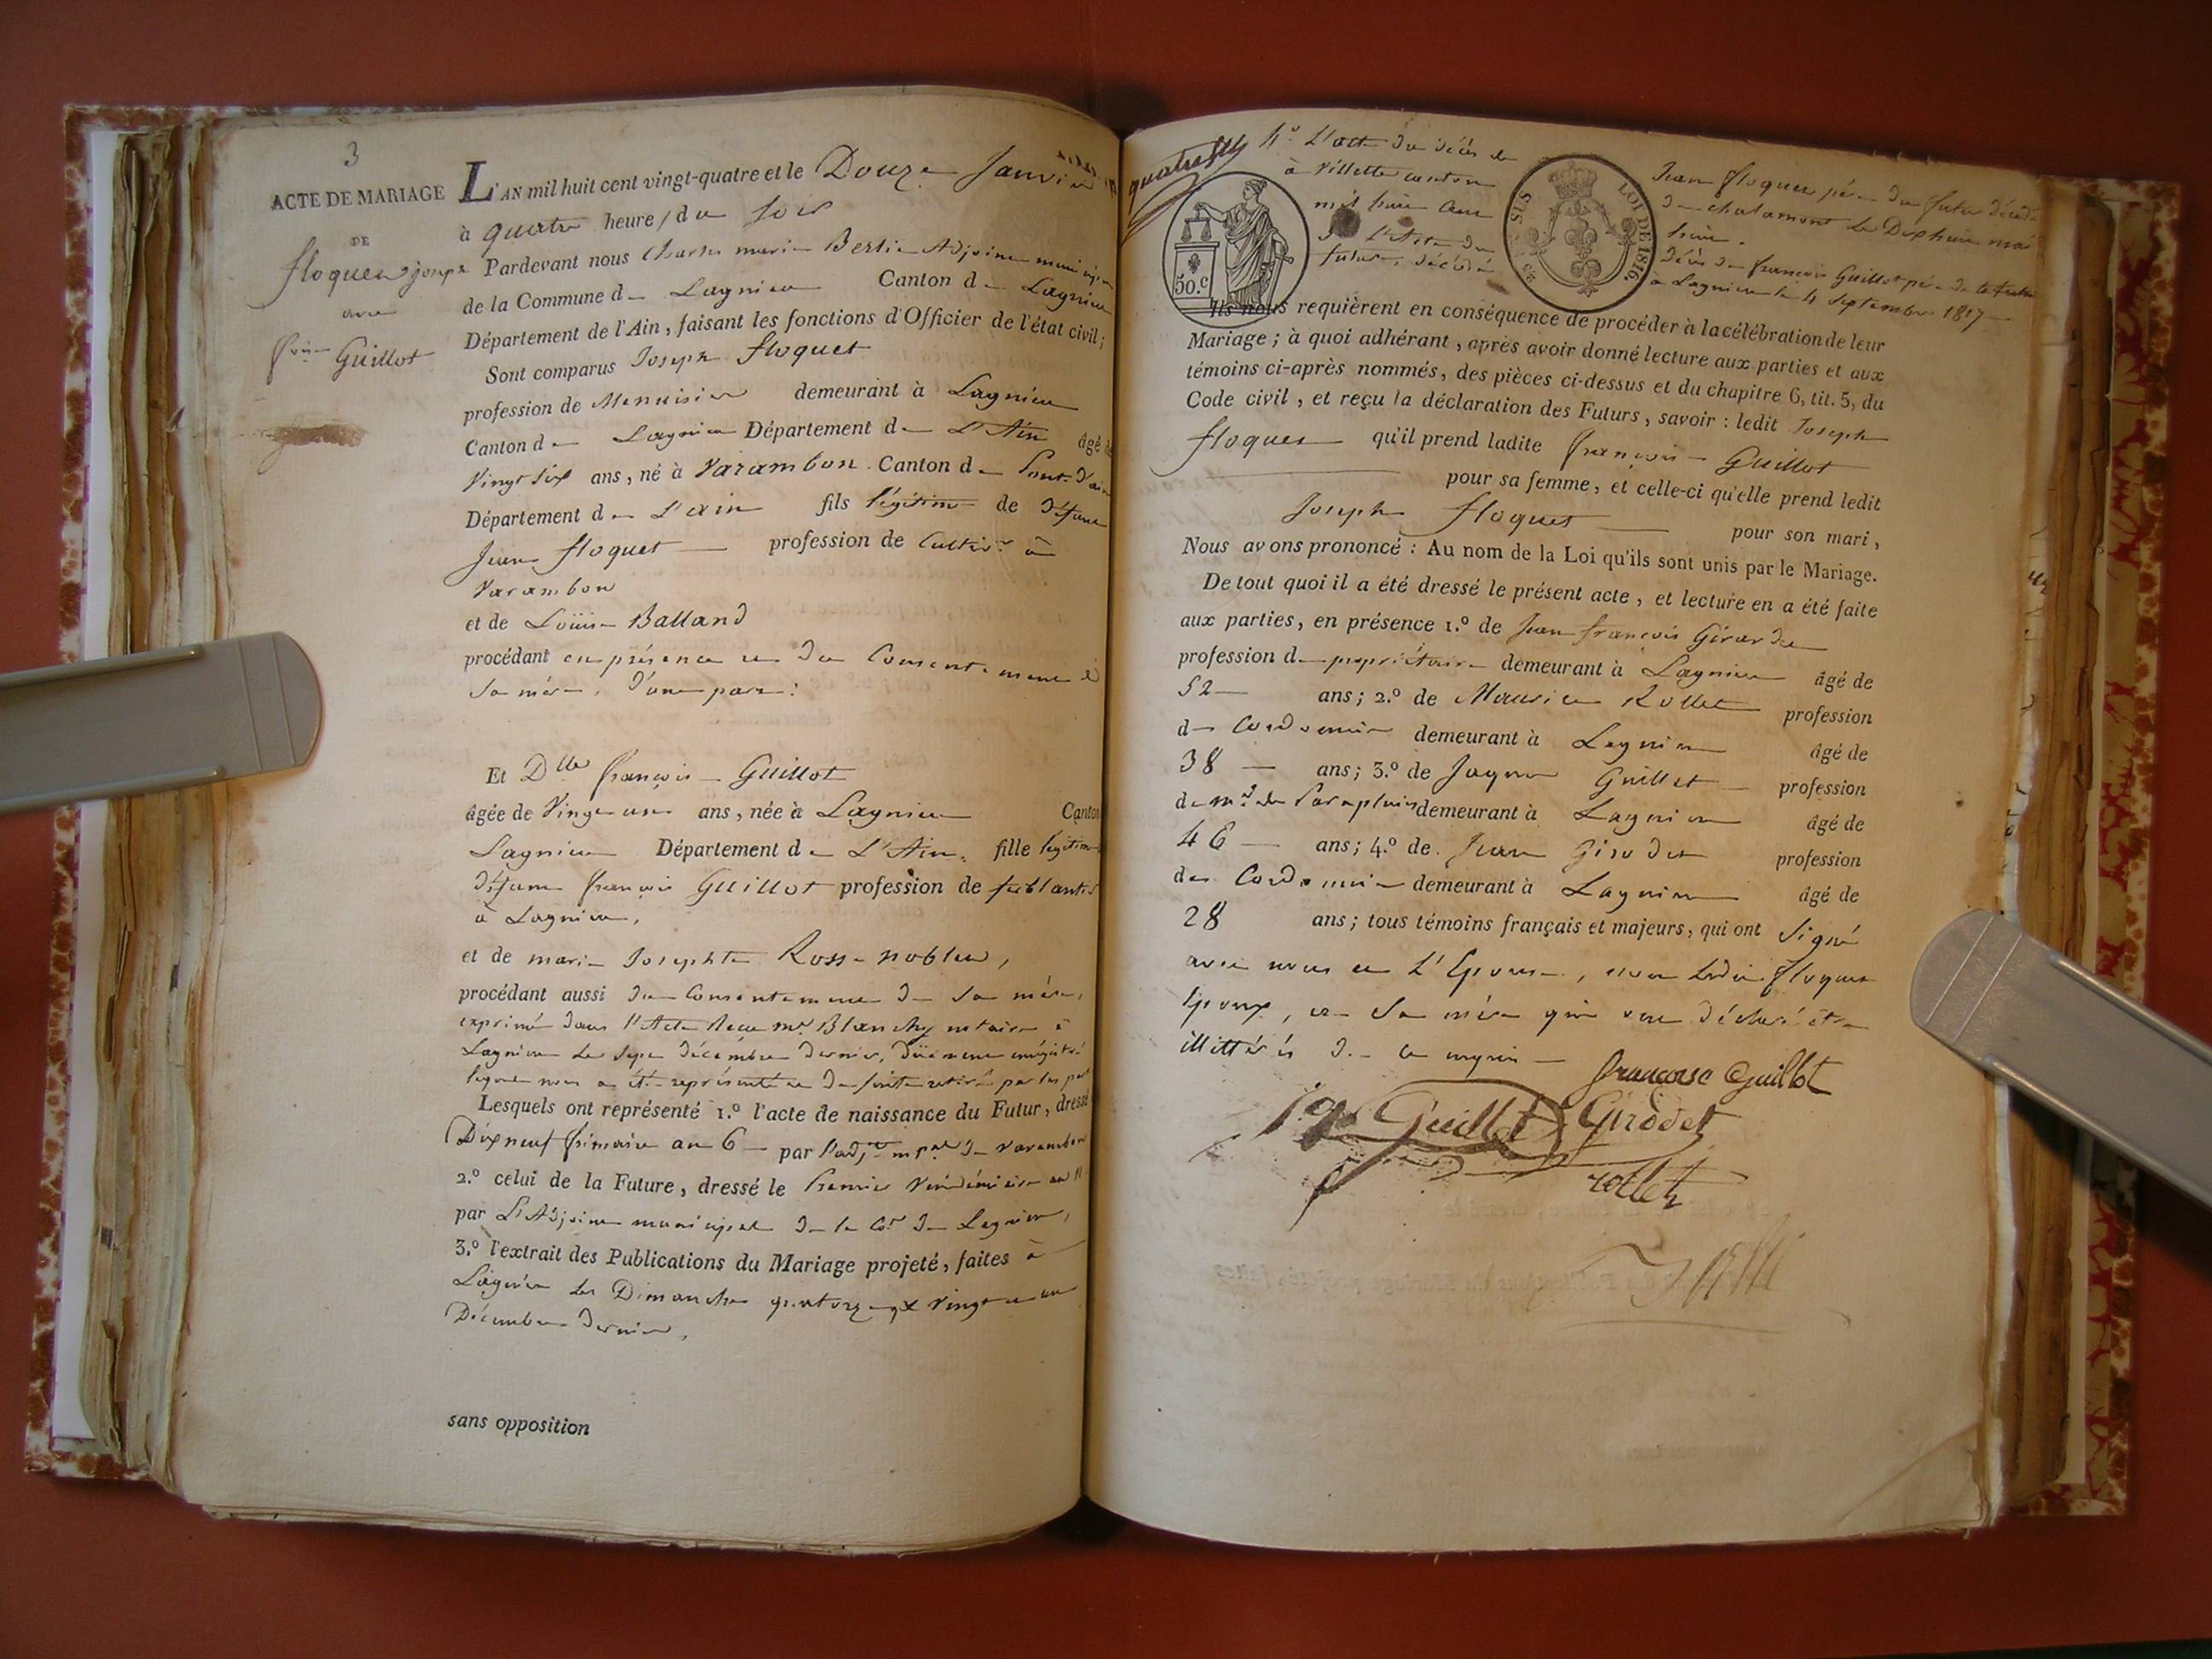 3
ACTE DE MARIAGE
DE
floquet joseph
avec
fçoise Guillot
L'AN mil huit cent vingt-quatre et le Douze Janvier
à quatre heures du soir
Pardevant nous Charles marie Berlie Adjoint municipal
de la Commune de Lagnieu Canton de Lagnieu
Département de l'Ain, faisant les fonctions d'Officier de l'état civil;
Sont comparus Joseph floquet
profession de Menuisier demeurant à Lagnieu
Canton de Lagnieu Département de L'Ain âgé de
Vingt six ans, né à Varambon Canton de Pont-d'ain
Département de L'ain fils légitime de défunt
Jean floquet profession de Cultivr à
Varambon
et de Loüise Balland
procédant en présence et du Consentement de
Sa mère, d'une part:
Et Dlle françoise Guillot
âgée de Vingt un ans, née à Lagnieu Canton
Lagnieu Département de L'Ain, fille légitime
défunt françois Guillot profession de ferblantier
à Lagnieu,
et de marie Josephte Rossenoblet,
procédant aussi du Consentement de Sa mère,
exprimé dans l'Acte Recu mr Blanchy notaire à
Lagnieu le Sept décembre dernier, düement enrégistré
lequel nous a été représenté et de suite retiré par les
Lesquels ont représenté 1.º l'acte de naissance du Futur, dressé
Dixneuf frimaire an 6 par l'adjt mpal de varambon
2.º celui de la Future, dressé le Premier Vendémiaire an 11
par L'Adjoint municipal de la Cne de Lagnieu,
3.º l'extrait des Publications du Mariage projeté, faites à
Lagnieu les Dimanches quatorze et Vingt et un
Décembre dernier,
sans opposition
4º L'acte du décès de Jean floquet père du futur décédé
à Villette canton de chalamont le Dixhuit mai
mil huit cent huit.
5º L'Acte du décès de françois Guillot père de la future
future, décédé à Lagnieu le 4 Septembre 1817
50.c
LOI DE 1816.
Ils nous requièrent en conséquence de procéder à la célébration de leur
Mariage; à quoi adhérant, après avoir donné lecture aux parties et aux
témoins ci-après nommés, des pièces ci-dessus et du chapitre 6, tit. 5, du
Code civil, et reçu la déclaration des Futurs, savoir: ledit Joseph
floquet qu'il prend ladite françoise Guillot
pour sa femme, et celle-ci qu'elle prend ledit
Joseph floquet pour son mari,
Nous avons prononcé: Au nom de la Loi qu'ils sont unis par le Mariage.
De tout quoi il a été dressé le présent acte, et lecture en a été faite
aux parties, en présence 1.º de Jean françois Girardet
profession de propriétaire demeurant à Lagnieu âgé de
52 ans; 2.º de Maurice Rollet profession
de Cordonnier demeurant à Lagnieu âgé de
38 ans; 3.º de Jaques Guillet profession
de md de Parapluies demeurant à Lagnieu âgé de
46 ans; 4.º de Jean Girodet profession
de Cordonnier demeurant à Lagnieu âgé de
28 ans; tous témoins français et majeurs, qui ont Signé
avec nous et L'Epouse, non ledit floquet
Epoux, et Sa mère qui ont déclaré être
illittérés de ce requis
françoise Guillot
Jq Guillet Girodet
rollet